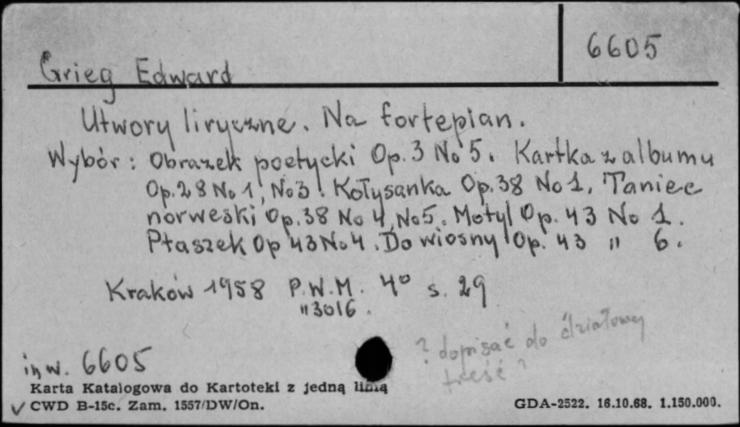 6605
Grieg Edward
Utwory liryczne. Na fortepian.
Wybór: Obrazek poetycki Op. 3 No 5. Kartka z albumu
Op. 28 No 1, No 3. Kołysanka Op. 38 No 1. Taniec
norweski Op. 38 No 4, No 5. Motyl Op. 43 No 1.
Ptaszek Op 43 No 4. Do wiosny Op. 43 " 6.
Kraków 1958 P.W.M. 4° s. 29
"3016.
? dopisać do działowej
treść?
inw. 6605
Karta Katalogowa do Kartoteki z jedną linią
✓ CWD B-15c. Zam. 1557/DW/On. GDA-2522. 16.10.68. 1.150.000.